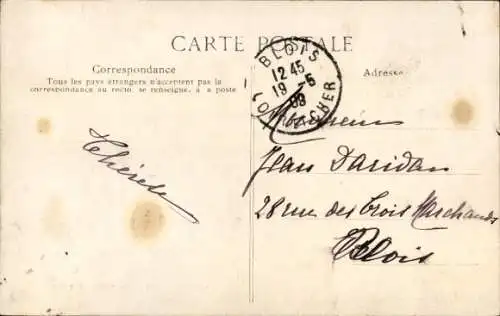 CARTE POSTALE
Correspondance
Tous les pays étrangers n'acceptent pas la
correspondance au recto, se renseigner à la poste
Adresse
BLOIS
12 45
19 -5
09
LOIR-ET-CHER
Thérèse
Monsieur
Jean Daridan
28 rue des trois Marchands
Blois